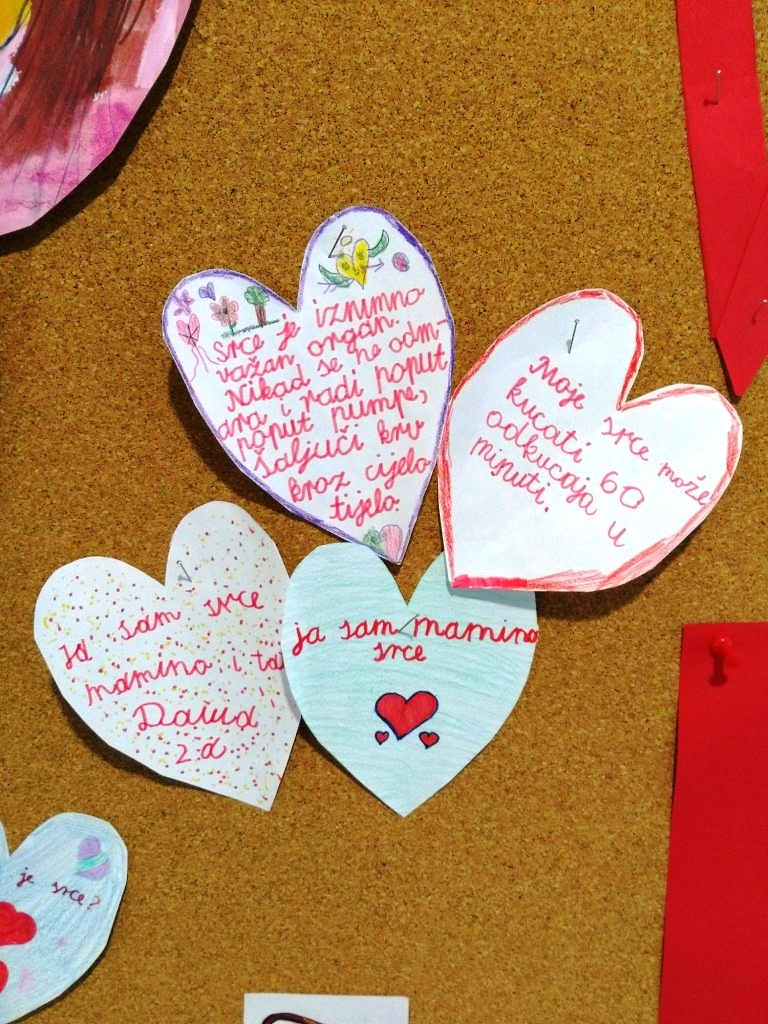 Srce je iznimno
važan organ.
Nikad se ne odm-
ara i radi poput
poput pumpe,
šaljuči krv
kroz cijelo
tijelo.
Moje srce može
kucati 60
odkucaja u
minuti.
Ja sam srce
mamino i ta
David
2.a
ja sam mamino
srce
je srce?